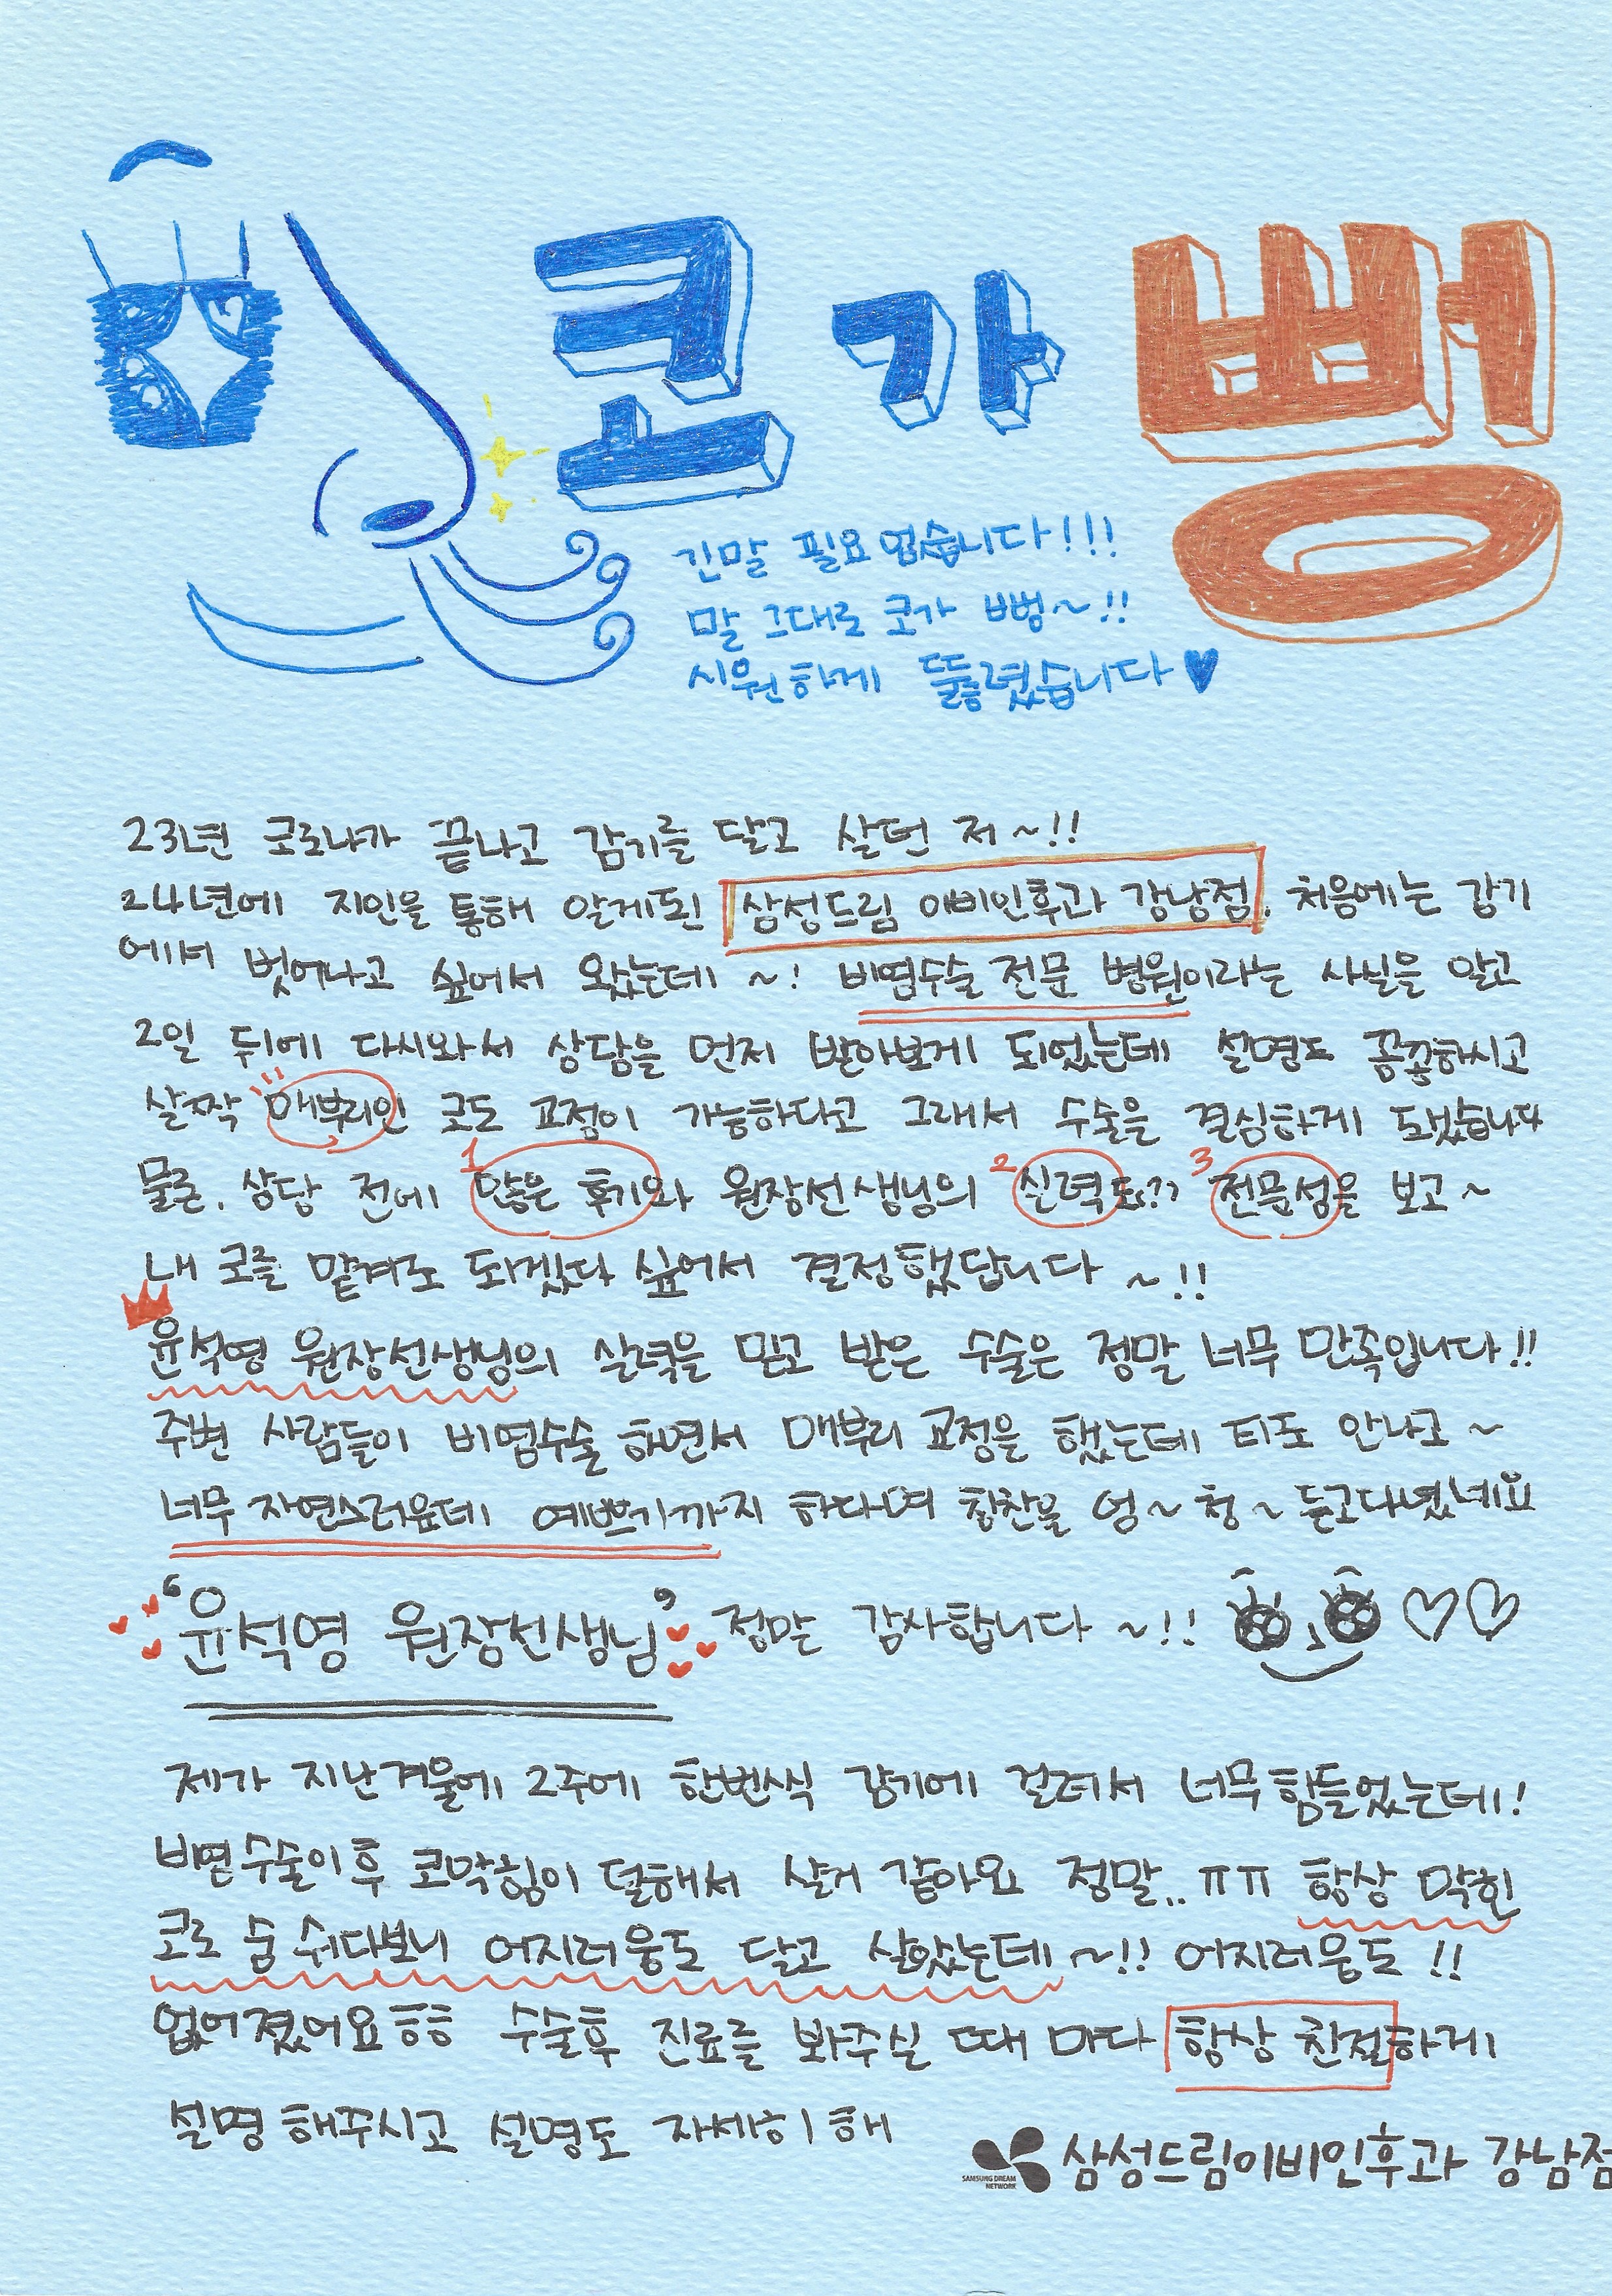 코가 뻥
긴말 필요 없습니다!!!
말 그대로 코가 뻥~!!
시원하게 뚫렸습니다♥
23년 코로나가 끝나고 감기를 달고 살던 저~!!
24년에 지인을 통해 알게된 삼성드림 이비인후과 강남점. 처음에는 감기
에서 벗어나고 싶어서 왔는데~! 비염수술 전문 병원이라는 사실을 알고
2일 뒤에 다시와서 상담을 먼저 받아보게 되었는데 설명도 꼼꼼하시고
살짝 매부리인 코도 교정이 가능하다고 그래서 수술을 결심하게 됐습니다
물론, 상담 전에 1 많은 후기와 원장선생님의 2 실력도?? 3 전문성을 보고~
내 코를 맡겨도 되겠다 싶어서 결정했답니다 ~!!
윤석영 원장선생님의 실력을 믿고 받은 수술은 정말 너무 만족입니다!!
주변 사람들이 비염수술 하면서 매부리 교정을 했는데 티도 안나고~
너무 자연스러운데 예쁘기까지 하다며 칭찬을 엄~청~ 듣고다녔네요
‘윤석영 원장선생님’ 정말 감사합니다 ~!! ♡♡
제가 지난겨울에 2주에 한번식 감기에 걸려서 너무힘들었는데!
비염수술이후 코막힘이 덜해서 살거 같아요 정말.. ㅠㅠ 항상 막힌
코로 숨 쉬다보니 어지러움도 달고 살았는데~!! 어지러움도 !!
없어졌어요ㅎㅎ 수술후 진료를 봐주실 때 마다 항상 친절하게
설명해주시고 설명도 자세히해
SAMSUNG DREAM NETWORK 삼성드림이비인후과 강남점